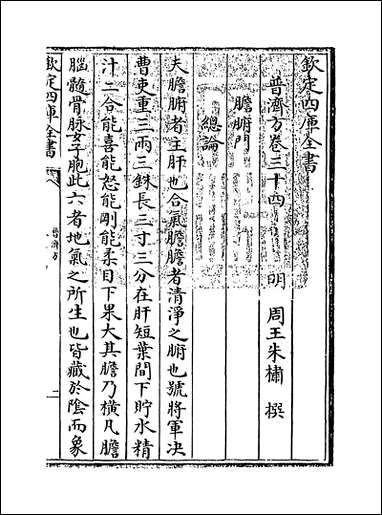 欽定四庫全書
普濟方卷三十四 明 周王朱橚 撰
膽腑門
總論
夫膽腑者主肝也合氣膽膽者清淨之腑也號將軍决
曹吏重三兩三銖長三寸三分在肝短葉間下貯水精
汁二合能喜能怒能剛能柔目下果大其膽乃橫凡膽
腦髓骨脉女子胞此六者地氣之所生也皆藏於隂而象
欽定四庫全書
普濟方
二